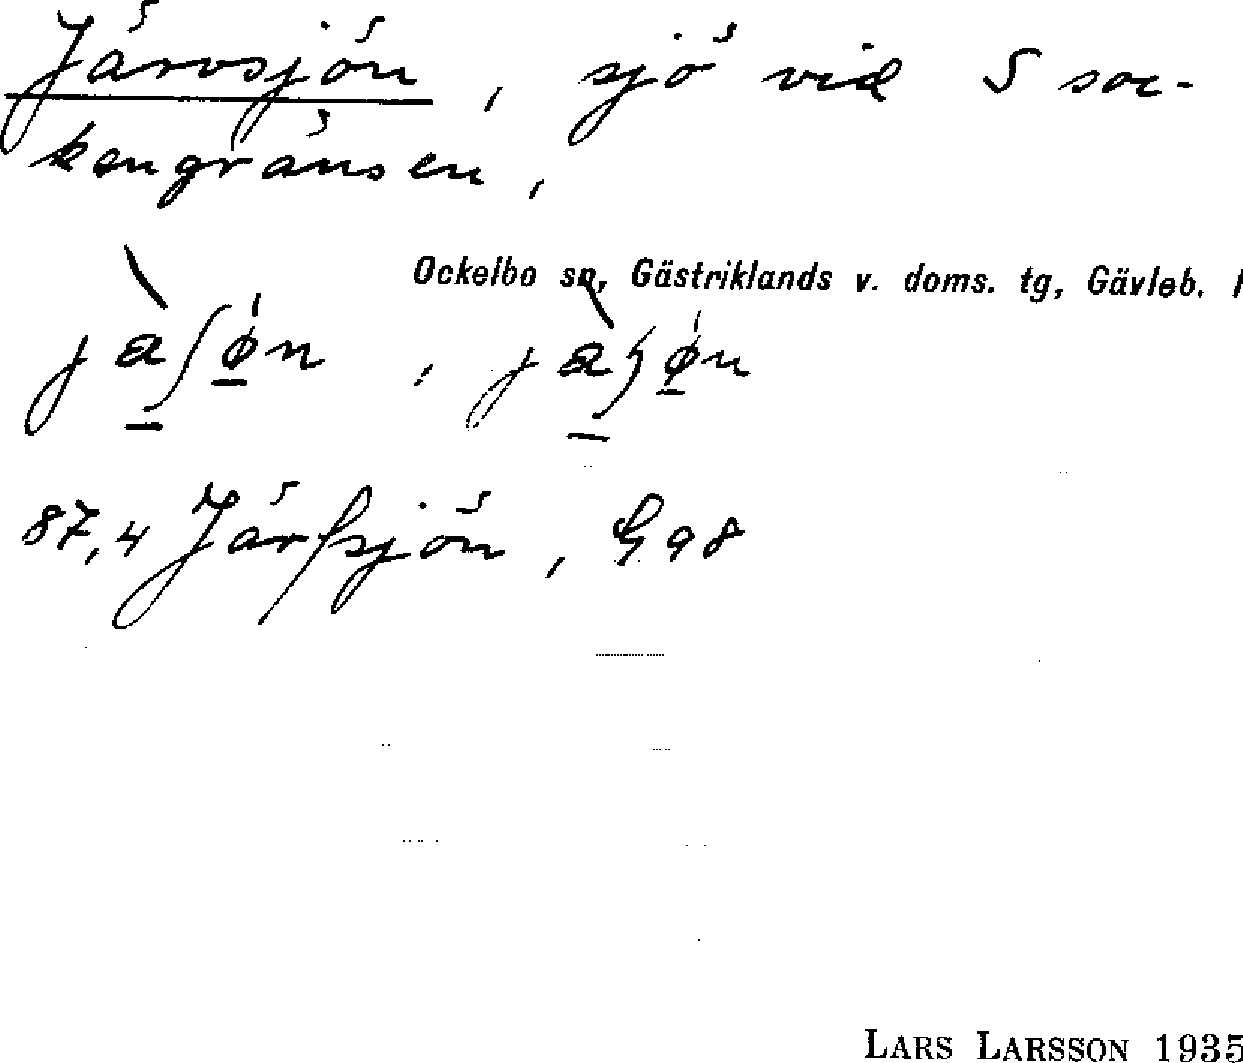 Järvsjön, sjö vid S soc-
kengränsen,
Ockelbo sn, Gästriklands v. doms. tg, Gävleb.
87,4 Järfsjön, G98
LARS LARSSON 1935